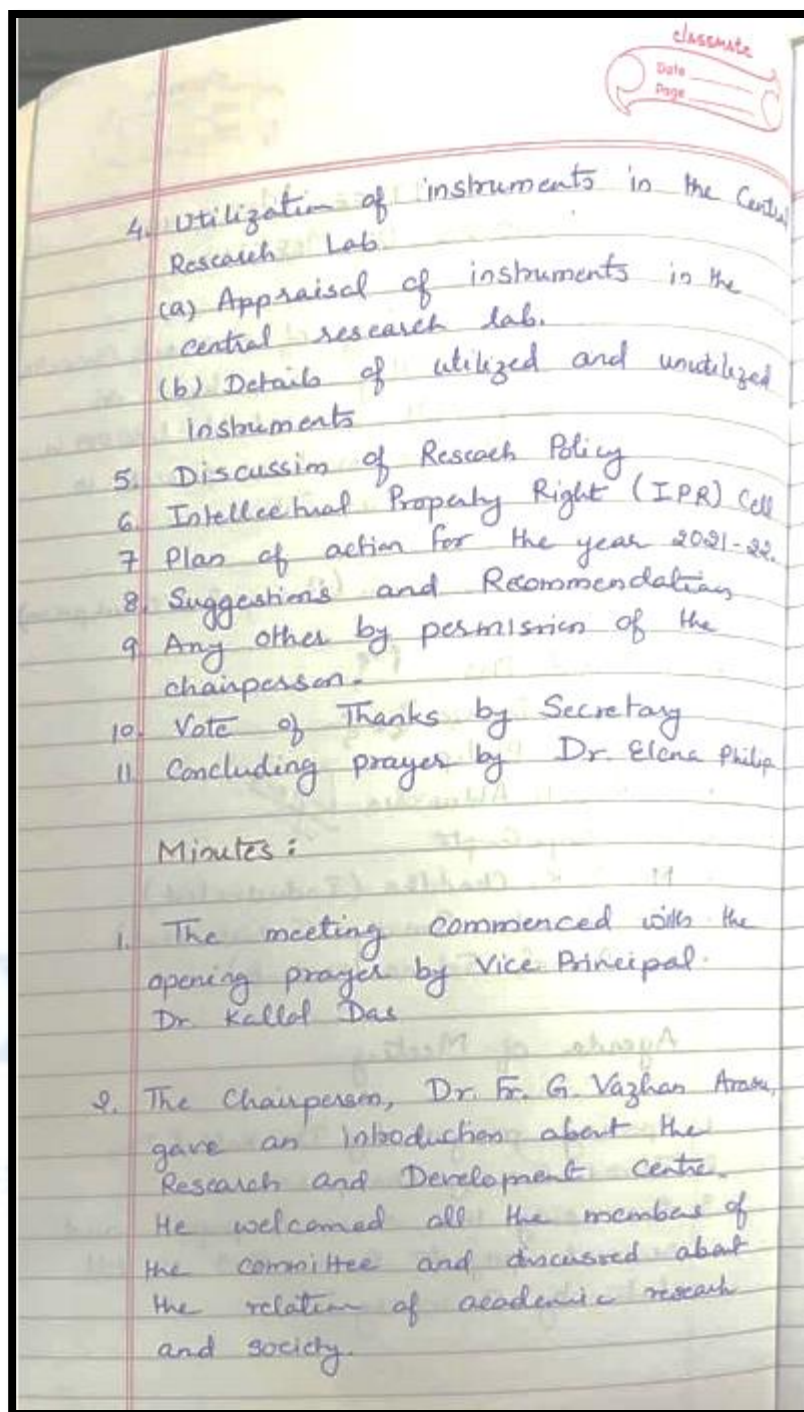 classmate
Date
Page
4. Utilization of instruments in the Central
Research Lab.
(a) Appraisal of instruments in the
central research lab.
(b) Details of utilized and unutilized
instruments
5. Discussion of Reseach Policy
6. Intellectual Property Right (IPR) Cell
7 Plan of action for the year 2021-22.
8. Suggestions and Recommendations
9. Any other by permission of the
chairperson.
10. Vote of Thanks by Secretary
11. Concluding prayer by Dr. Elena Philip
Minutes:
1. The meeting commenced with the
opening prayer by Vice Principal.
Dr. Kallol Das
2. The Chairperson, Dr. Fr. G. Vazhan Arasu,
gave an introduction about the
Research and Development Centre.
He welcomed all the members of
the committee and discussed about
the relation of academic reseach
and society.